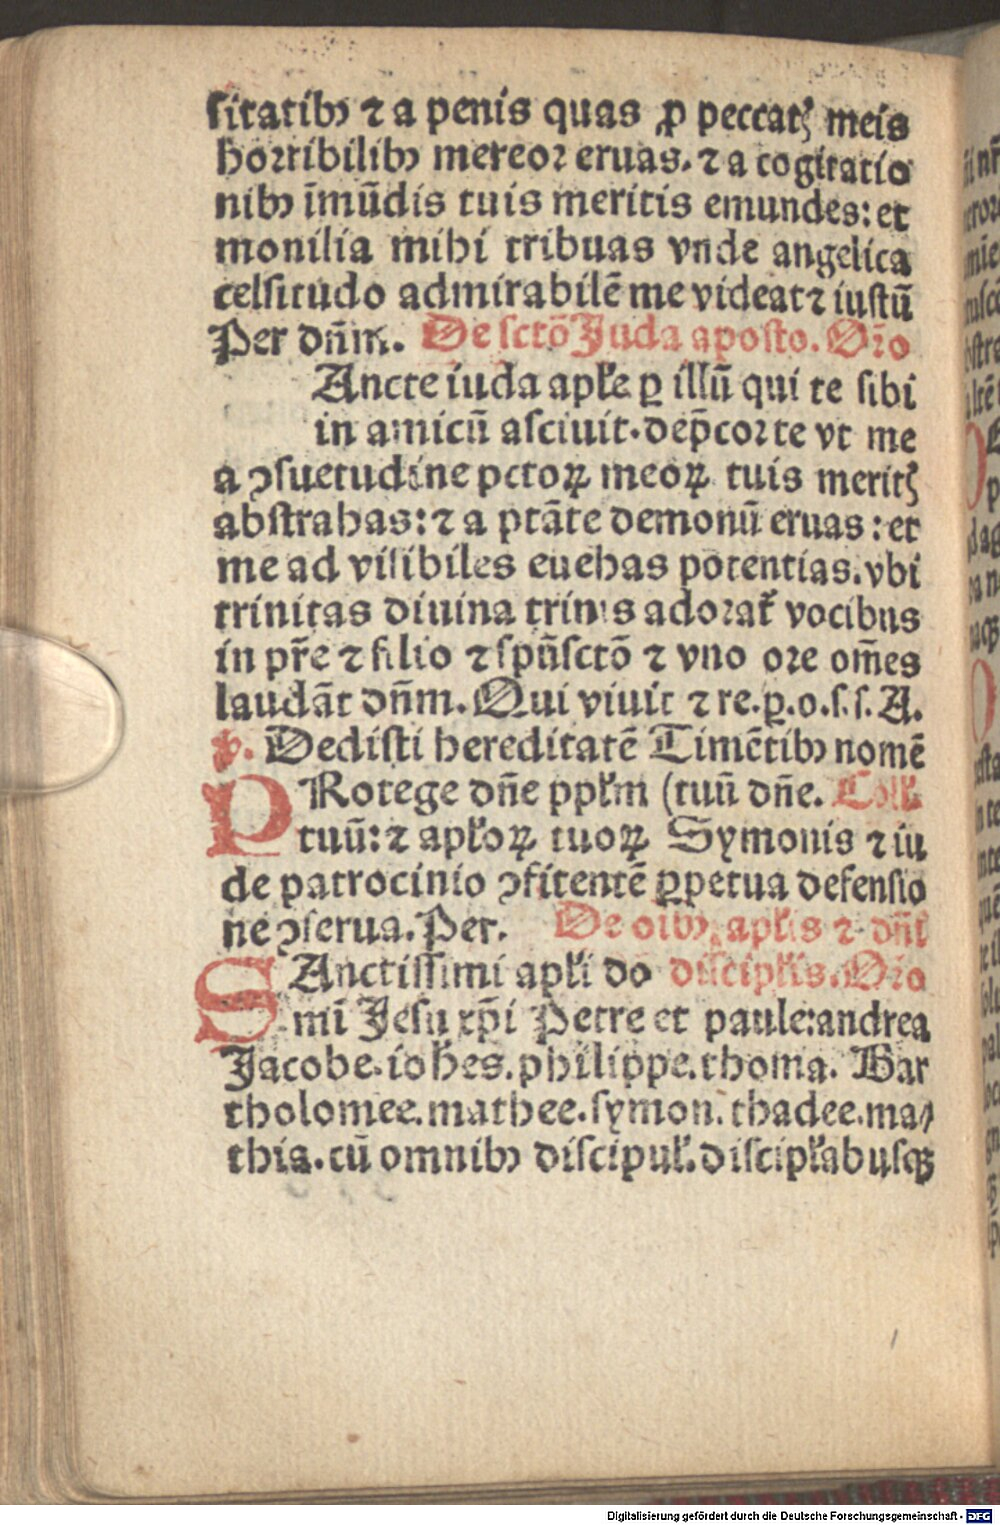 sitatibꝰ ⁊ a penis quas ꝓ peccatꝭ meis
horribilibꝰ mereor eruas. ⁊ a cogitatio
nibꝰ īmūdis tuis meritis emundes: et
monilia mihi tribuas vnde angelica
celsitudo admirabilē me videat ⁊ iustū
Per dn̄m. De sctō Juda aposto. Or̄o
Ancte iuda apl̓e ꝑ illū qui te sibi
in amicū asciuit. dep̄cor te vt me
a ꝯsuetudine pctoꝝ meoꝝ tuis meritꝭ
abstrahas: ⁊ a ptāte demonū eruas: et
me ad visibiles euehas potentias. vbi
trinitas diuina trinis adorat̄ vocibus
in pr̄e ⁊ filio ⁊ spūsctō ⁊ vno ore om̄es
laudāt dn̄m. Qui viuit ⁊ re. ꝑ. o. s. s. A.
v. Dedisti hereditatē Timētibꝰ nomē
PRotege dn̄e ppl̓m (tuū dn̄e. Coll̓
tuū: ⁊ apl̓oꝝ tuoꝝ Symonis ⁊ iu
de patrocinio ꝯfitentē ꝑpetua defensio
ne ꝯserua. Per. De oibꝰ. apl̓is ⁊ dn̄i
SAnctissimi apl̓i do discipl̓is. Or̄o
mī Jesu xp̄i Petre et paule: andrea
Jacobe. ioh̄es. philippe. thoma. Bar
tholomee. mathee. symon. thadee. ma/
thia. cū omnibꝰ discipul̓. discipl̓abusqꝫ
Digitalisierung gefördert durch die Deutsche Forschungsgemeinschaft - DFG